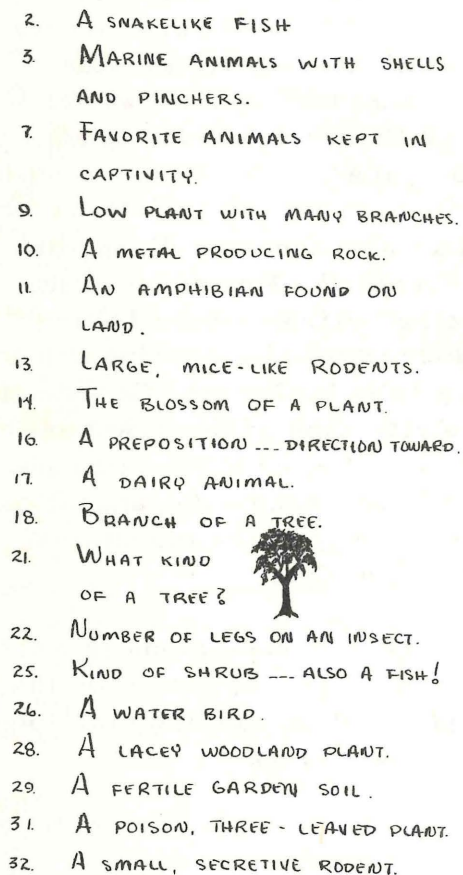 2. A SNAKELIKE FISH
3. MARINE ANIMALS WITH SHELLS
AND PINCHERS.
7. FAVORITE ANIMALS KEPT IN
CAPTIVITY.
9. LOW PLANT WITH MANY BRANCHES.
10. A METAL PRODUCING ROCK.
11. AN AMPHIBIAN FOUND ON
LAND.
13. LARGE, MICE-LIKE RODENTS.
14. THE BLOSSOM OF A PLANT.
16. A PREPOSITION --- DIRECTION TOWARD.
17. A DAIRY ANIMAL.
18. BRANCH OF A TREE.
21. WHAT KIND
OF A TREE?
22. NUMBER OF LEGS ON AN INSECT.
25. KIND OF SHRUB --- ALSO A FISH!
26. A WATER BIRD.
28. A LACEY WOODLAND PLANT.
29. A FERTILE GARDEN SOIL.
31. A POISON, THREE-LEAVED PLANT.
32. A SMALL, SECRETIVE RODENT.